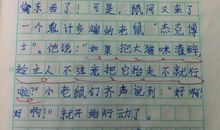 偷东西了！可是，鼠阿又来了
一个诡计多端的老鼠“杰克博
士”，他说：“如果把大猫咪灌醉
趁主人不注意把它抬走不就行
啦？”小老鼠们齐声说到：“好啊！
好啊！”就开始行动了。